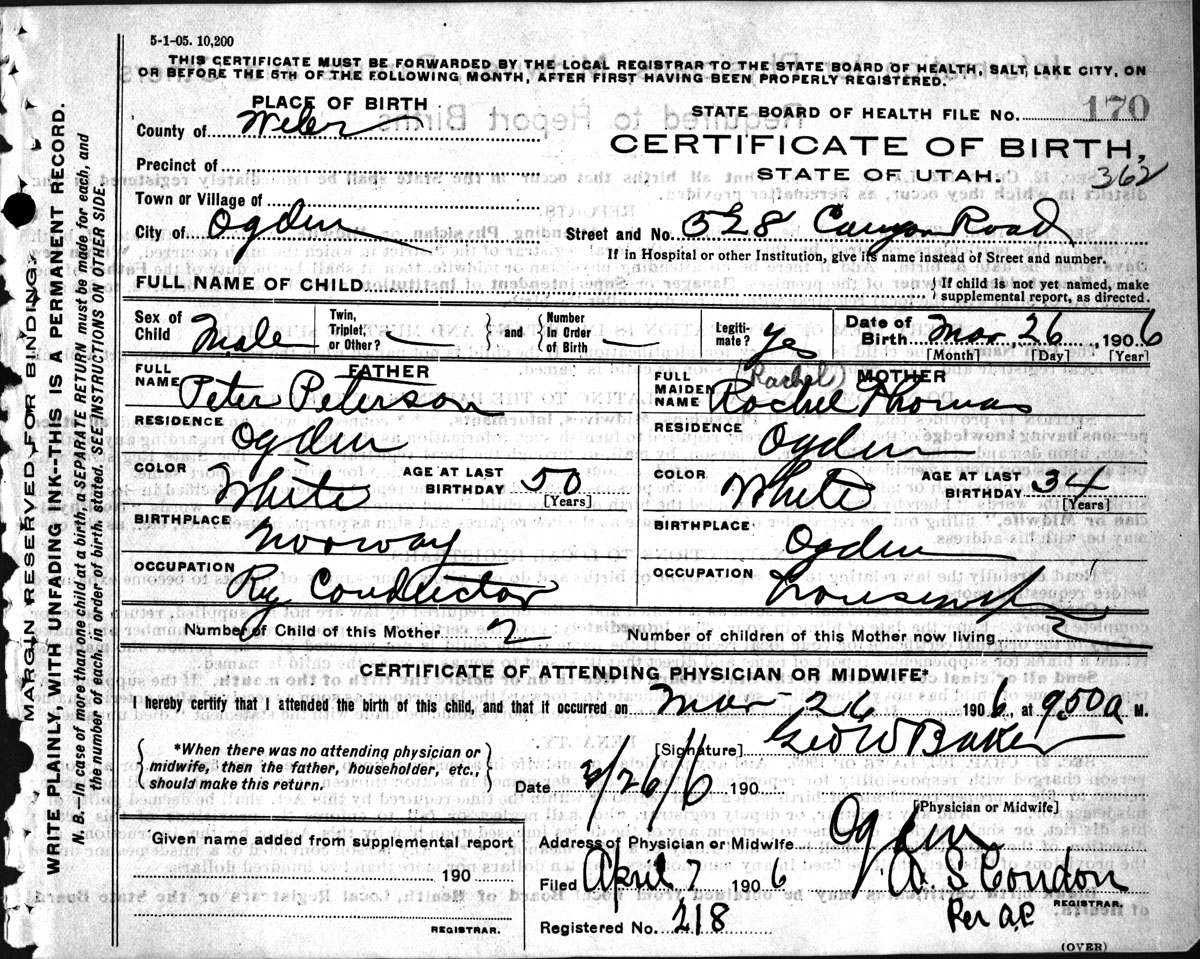 5-1-05. 10,200
THIS CERTIFICATE MUST BE FORWARDED BY THE LOCAL REGISTRAR TO THE STATE BOARD OF HEALTH, SALT LAKE CITY, ON
OR BEFORE THE 5TH OF THE FOLLOWING MONTH, AFTER FIRST HAVING BEEN PROPERLY REGISTERED.
PLACE OF BIRTH
STATE BOARD OF HEALTH FILE No. 170
County of Weber
CERTIFICATE OF BIRTH,
Precinct of
STATE OF UTAH. 362
Town or Village of
City of Ogden Street and No. 528 Canyon Road
If in Hospital or other Institution, give its name instead of Street and number.
FULL NAME OF CHILD { If child is not yet named, make supplemental report, as directed.
Sex of Child Male Twin, Triplet, or Other? — } and { Number In Order of Birth — Legitimate? yes Date of Birth Mar, 26, 1906
[Month] [Day] [Year]
FATHER (Rachel) MOTHER
FULL NAME Peter Peterson FULL MAIDEN NAME Rachel Thomas
RESIDENCE Ogden RESIDENCE Ogden
COLOR White AGE AT LAST BIRTHDAY 50 [Years] COLOR White AGE AT LAST BIRTHDAY 34 [Years]
BIRTHPLACE Norway BIRTHPLACE Ogden
OCCUPATION Ry Conductor OCCUPATION Housewife
Number of Child of this Mother 2 Number of children of this Mother now living 2
CERTIFICATE OF ATTENDING PHYSICIAN OR MIDWIFE*
I hereby certify that I attended the birth of this child, and that it occurred on Mar 26 1906, at 9.50 a M.
{ *When there was no attending physician or midwife, then the father, householder, etc., should make this return. }
[Signature] Geo W Baker
Date 3/26/6 190
[Physician or Midwife]
Given name added from supplemental report
Address of Physician or Midwife Ogden
190
Filed April 7 1906 A. S Condon
REGISTRAR.
REGISTRAR.
Registered No. 218 Per A.P.
(OVER)
MARGIN RESERVED FOR BINDING.
WRITE PLAINLY, WITH UNFADING INK--THIS IS A PERMANENT RECORD.
N. B.—In case of more than one child at a birth, a SEPARATE RETURN must be made for each, and
the number of each, in order of birth, stated. SEE INSTRUCTIONS ON OTHER SIDE.